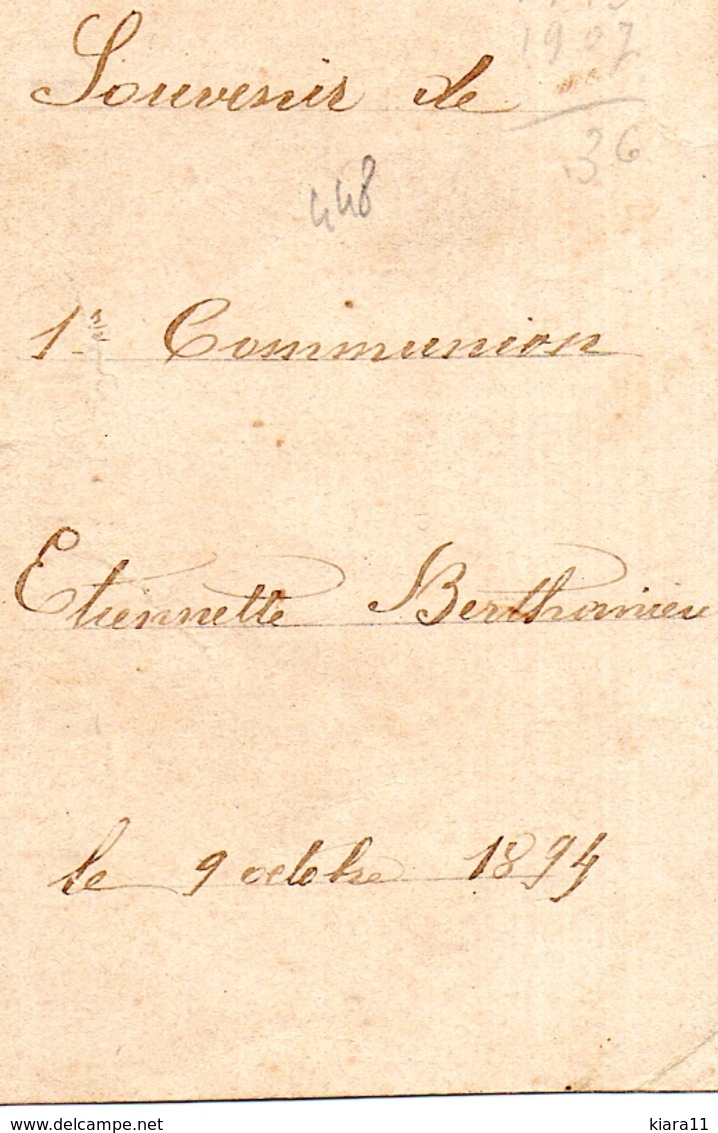 1907
Souvenir de
36
448
1re Communion
Etiennette Berthonieu
le 9 octobre 1894
© delcampe.net
kiara11